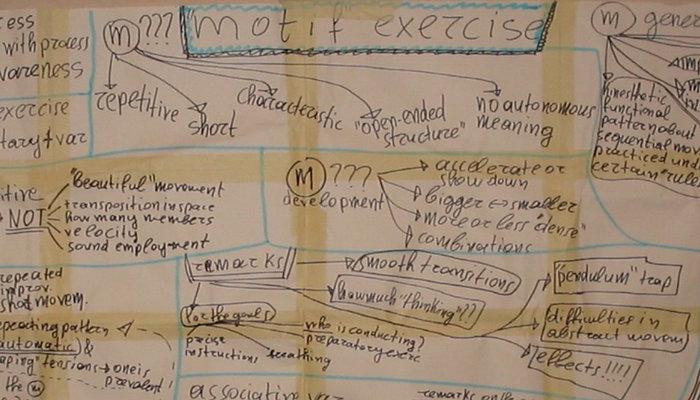 "motif" exercise
cess
with process
wareness
exercise
tary + var
m ???
repetitive
short
characteristic
"open-ended
structure"
no autonomous
meaning
m gener
kinesthetic
functional
pattern abou
sequential mov
practiced und
certain "rule
itive
NOT
"Beautiful" movement
transposition in space
how many members
velocity
sound employment
m ???
development
accelerate or
slow down
bigger ↔ smaller
more or less "dense"
combinations
repeated
improv.
short movem.
peacting pattern
automatic) &
aping" tensions → one is
prevalent
the m
remarks
for the goals
precise
instructions
breathing
who is conducting?
preparatory exerc
smooth transitions
how much "thinking"??
"pendulum" trap
difficulties in
abstract movem
effects!!!!
associative var
remarks on the